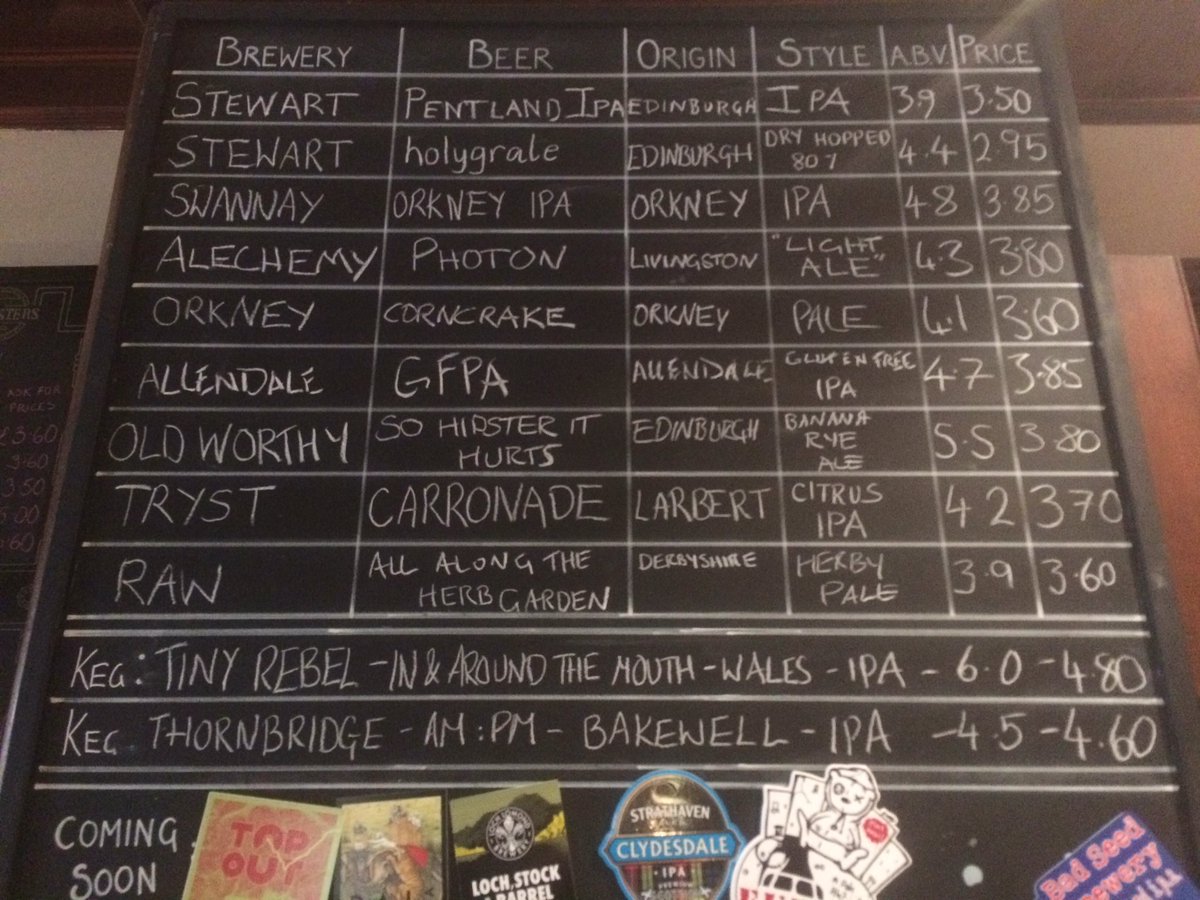 BREWERY BEER ORIGIN STYLE A.B.V. PRICE
STEWART PENTLAND IPA EDINBURGH IPA 3.9 3.50
STEWART holygrale EDINBURGH DRY HOPPED 80/ 4.4 2.95
SWANNAY ORKNEY IPA ORKNEY IPA 4.8 3.85
ALECHEMY PHOTON LIVINGSTON "LIGHT ALE" 4.3 3.80
ORKNEY CORNCRAKE ORKNEY PALE 4.1 3.60
ALLENDALE GFPA ALLENDALE GLUTEN FREE IPA 4.7 3.85
OLD WORTHY SO HIPSTER IT HURTS EDINBURGH BANANA RYE ALE 5.5 3.80
TRYST CARRONADE LARBERT CITRUS IPA 4.2 3.70
RAW ALL ALONG THE HERB GARDEN DERBYSHIRE HERBY PALE 3.9 3.60
KEG: TINY REBEL - IN & AROUND THE MOUTH - WALES - IPA - 6.0 - 4.80
KEG THORNBRIDGE - AM:PM - BAKEWELL - IPA - 4.5 - 4.60
COMING SOON
TOP OUT
LOCH, STOCK
& BARREL
STRATHAVEN
CLYDESDALE
IPA
PREMIUM
Bad Seed
ASK FOR
PRICES
£3.60
3.60
3.50